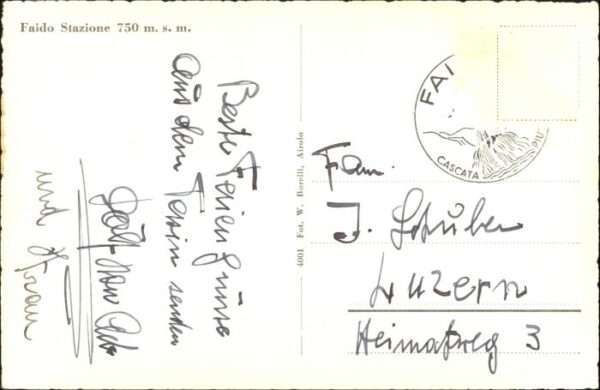 Faido Stazione 750 m. s. m.
Beste Feriengrüsse
aus dem Tessin senden
und Frau
4001 Fot. W. Borelli, Airolo
FAI
CASCATA
Fam.
J. Schuber
Luzern
Heimatweg 3